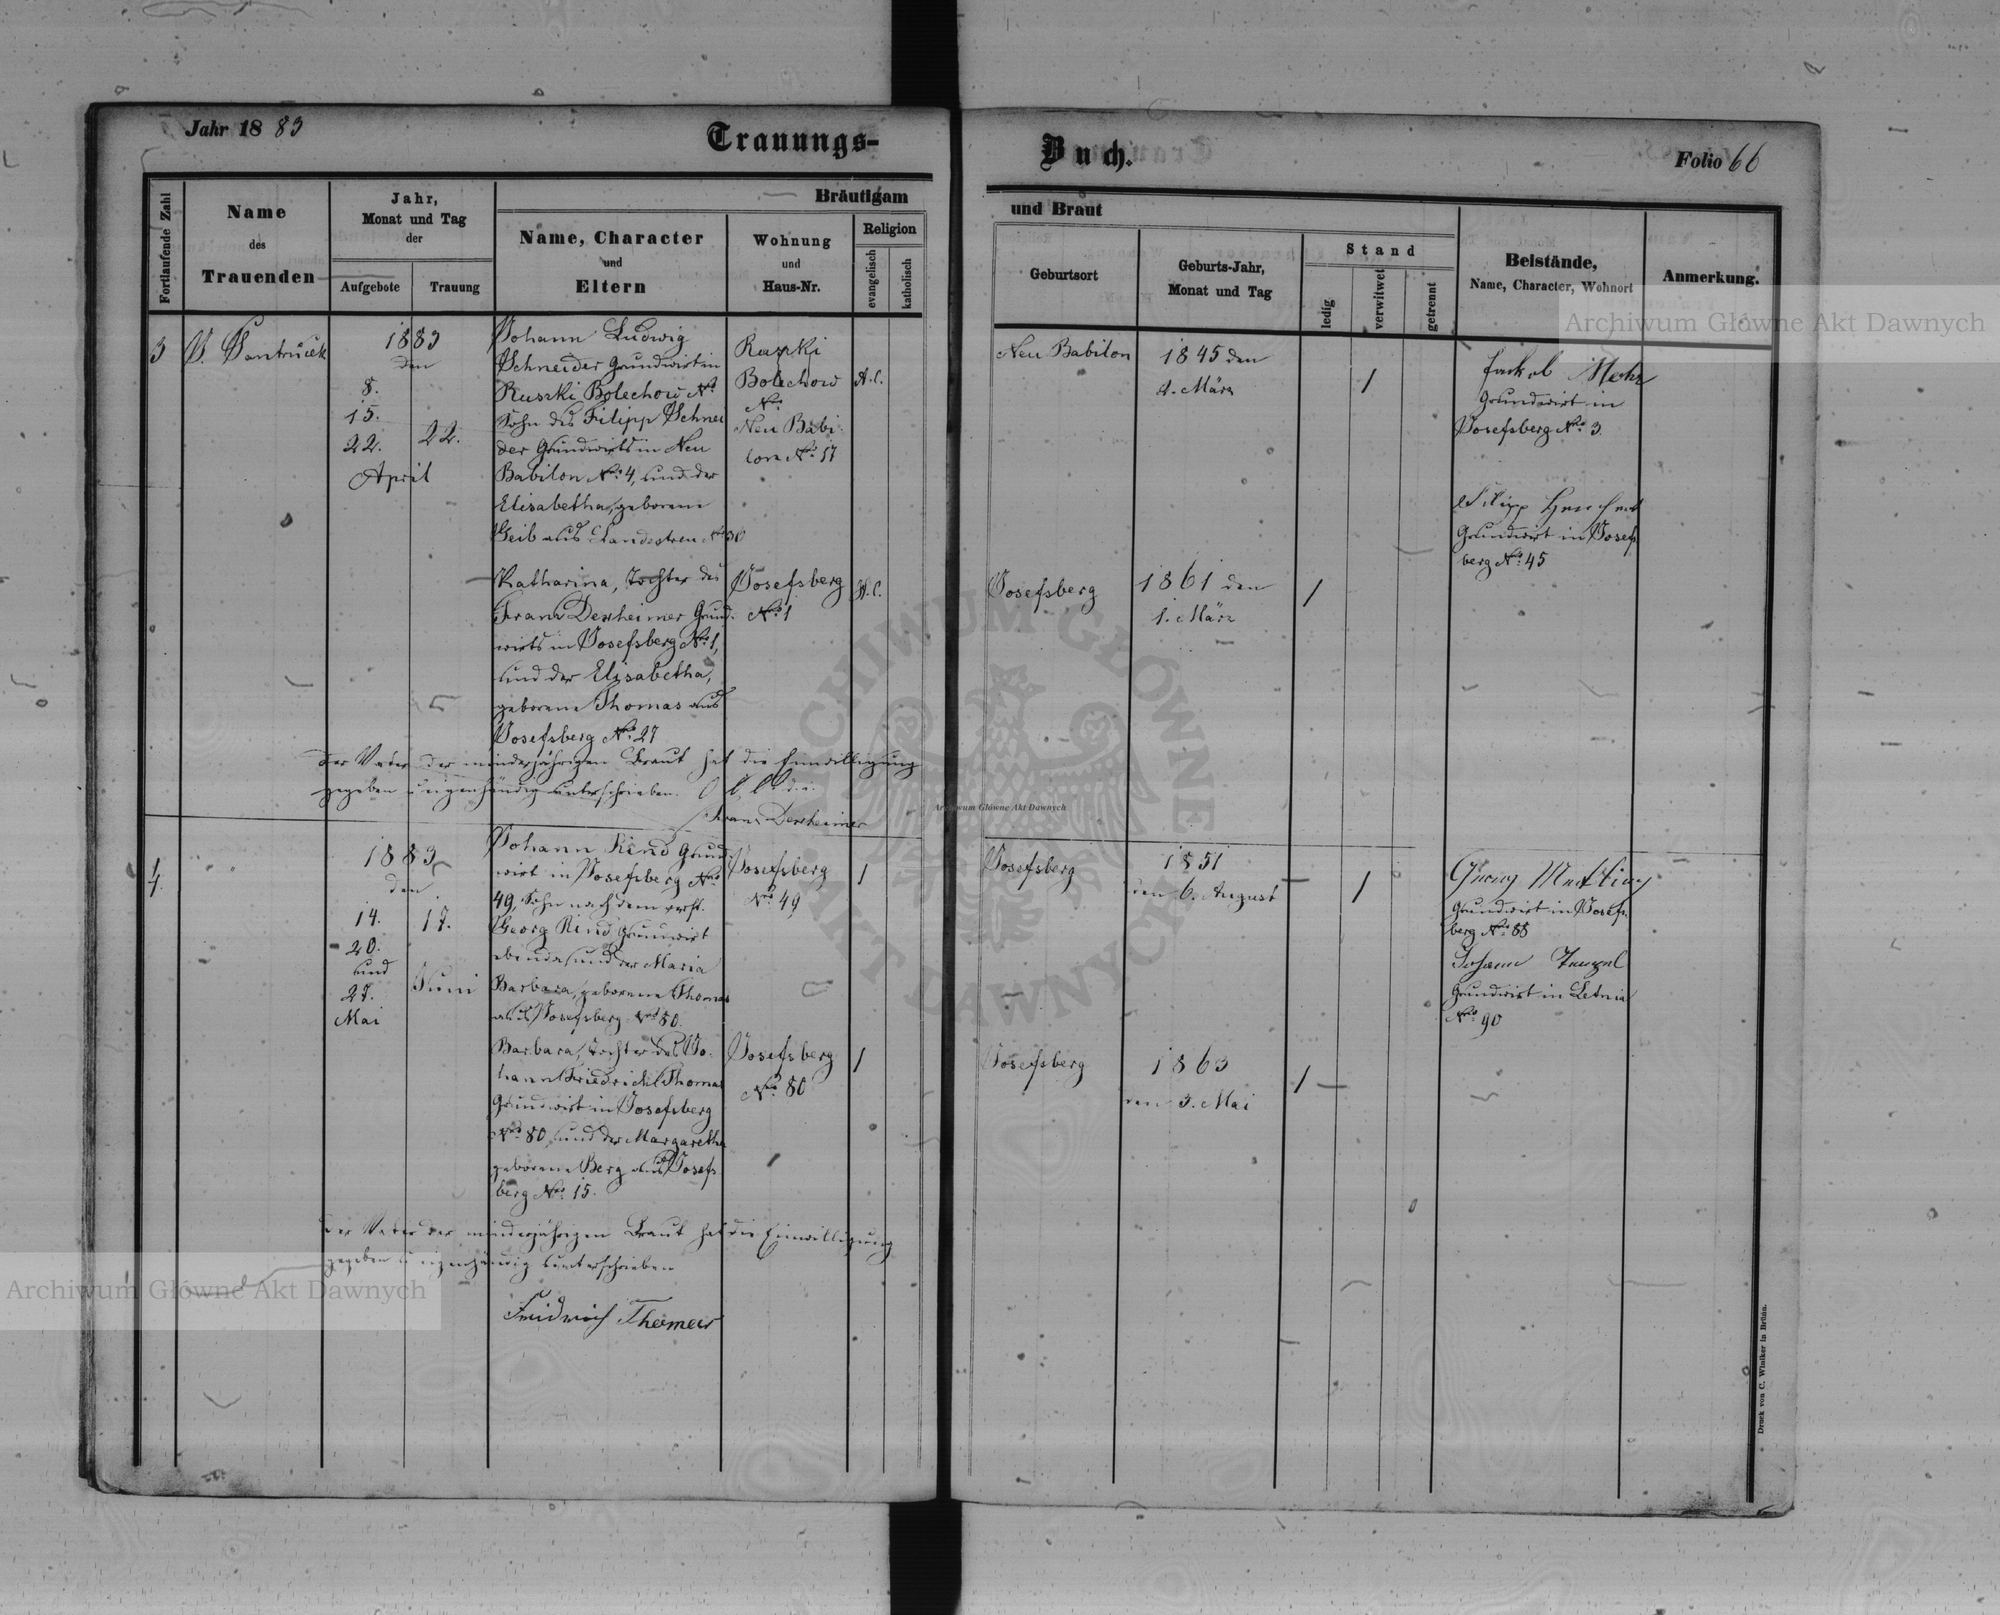 Jahr 1883
Trauungs-
Buch.
Folio 66
Fortlaufende Zahl
Name
des
Trauenden
Jahr,
Monat und Tag
der
Aufgebote
Trauung
Bräutigam
und Braut
Name, Character
und
Eltern
Wohnung
und
Haus-Nr.
Religion
evangelisch
katholisch
Geburtsort
Geburts-Jahr,
Monat und Tag
Stand
ledig
verwitwet
getrennt
Beistände,
Name, Character, Wohnort
Anmerkung.
3
1883
den
8.
15.
22.
22.
April
Johann Ludwig
Schneider Grundwirt in
Ruszki Bolechow No
Sohn des Filipp Schnei
der Grundwirts in Neu
Babilon Nro 4, und der
Elisabetha, geborene
Geib aus Landestreu Nro 30
Ruszki
Bolechow
Nro
Neu Babi
lon Nro 17
A.C.
Neu Babilon
1845 den
März
/
Jackob Mohr
Grundwirt in
Josefsberg Nro 3.
Filipp
Grundwirt in Josefs
berg Nro 45
Katharina, Tochter des
Franz Dexheimer Grund
wirts in Josefsberg Nro 1,
und der Elisabetha,
geborene Thomas aus
Josefsberg Nro 27
Josefsberg
Nro 1
H.C.
Josefsberg
1861 den
1. März
/
Der Vater der minderjährigen Braut hat die Einwilligung
gegeben u eigenhändig unterschrieben.
Franz Dexheimer
4.
1883
den
14.
20.
und
27.
Mai
17.
Juni
Johann Rind Grund
wirt in Josefsberg Nro
49, Sohn nach dem verst.
Georg Rind Grundwirt
ebenda, und der Maria
Barbara, geborene Thomas
aus Josefsberg Nro 80.
Josefsberg
Nro 49
/
Josefsberg
1851
den 6. August
/
Grundwirt in Josefs
berg Nro 88
Johann
Grundwirt in Letnia
Nro 90
Barbara, Tochter des Jo-
hann Friedrich Thomas
Grundwirt in Josefsberg
Nro 80, und der Margaretha
geborene Berg aus Josefs
berg Nro 15.
Josefsberg
Nro 80
/
Josefsberg
1863
den 3. Mai
/
Der Vater der minderjährigen Braut hat die Einwilligung
gegeben u eigenhändig unterschrieben
Friedrich Thomas
Druck von C. Winiker in Brünn.
Archiwum Główne Akt Dawnych
Archiwum Główne Akt Dawnych
Archiwum Główne Akt Dawnych
ARCHIWUM GŁÓWNE AKT DAWNYCH